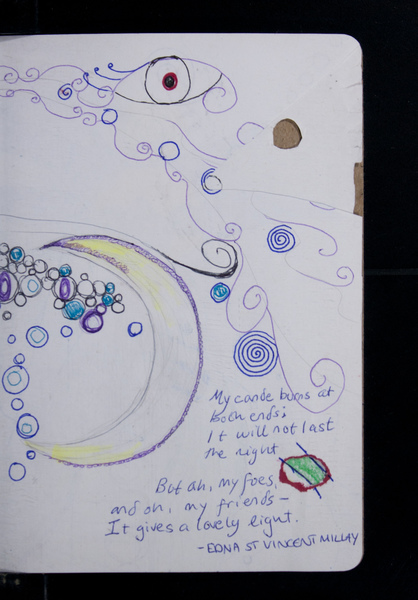 My cande burns at
both ends;
It will not last
the night
But ah, my foes,
and oh, my friends –
It gives a lovely light.
- EDNA ST VINCENT MILLAY